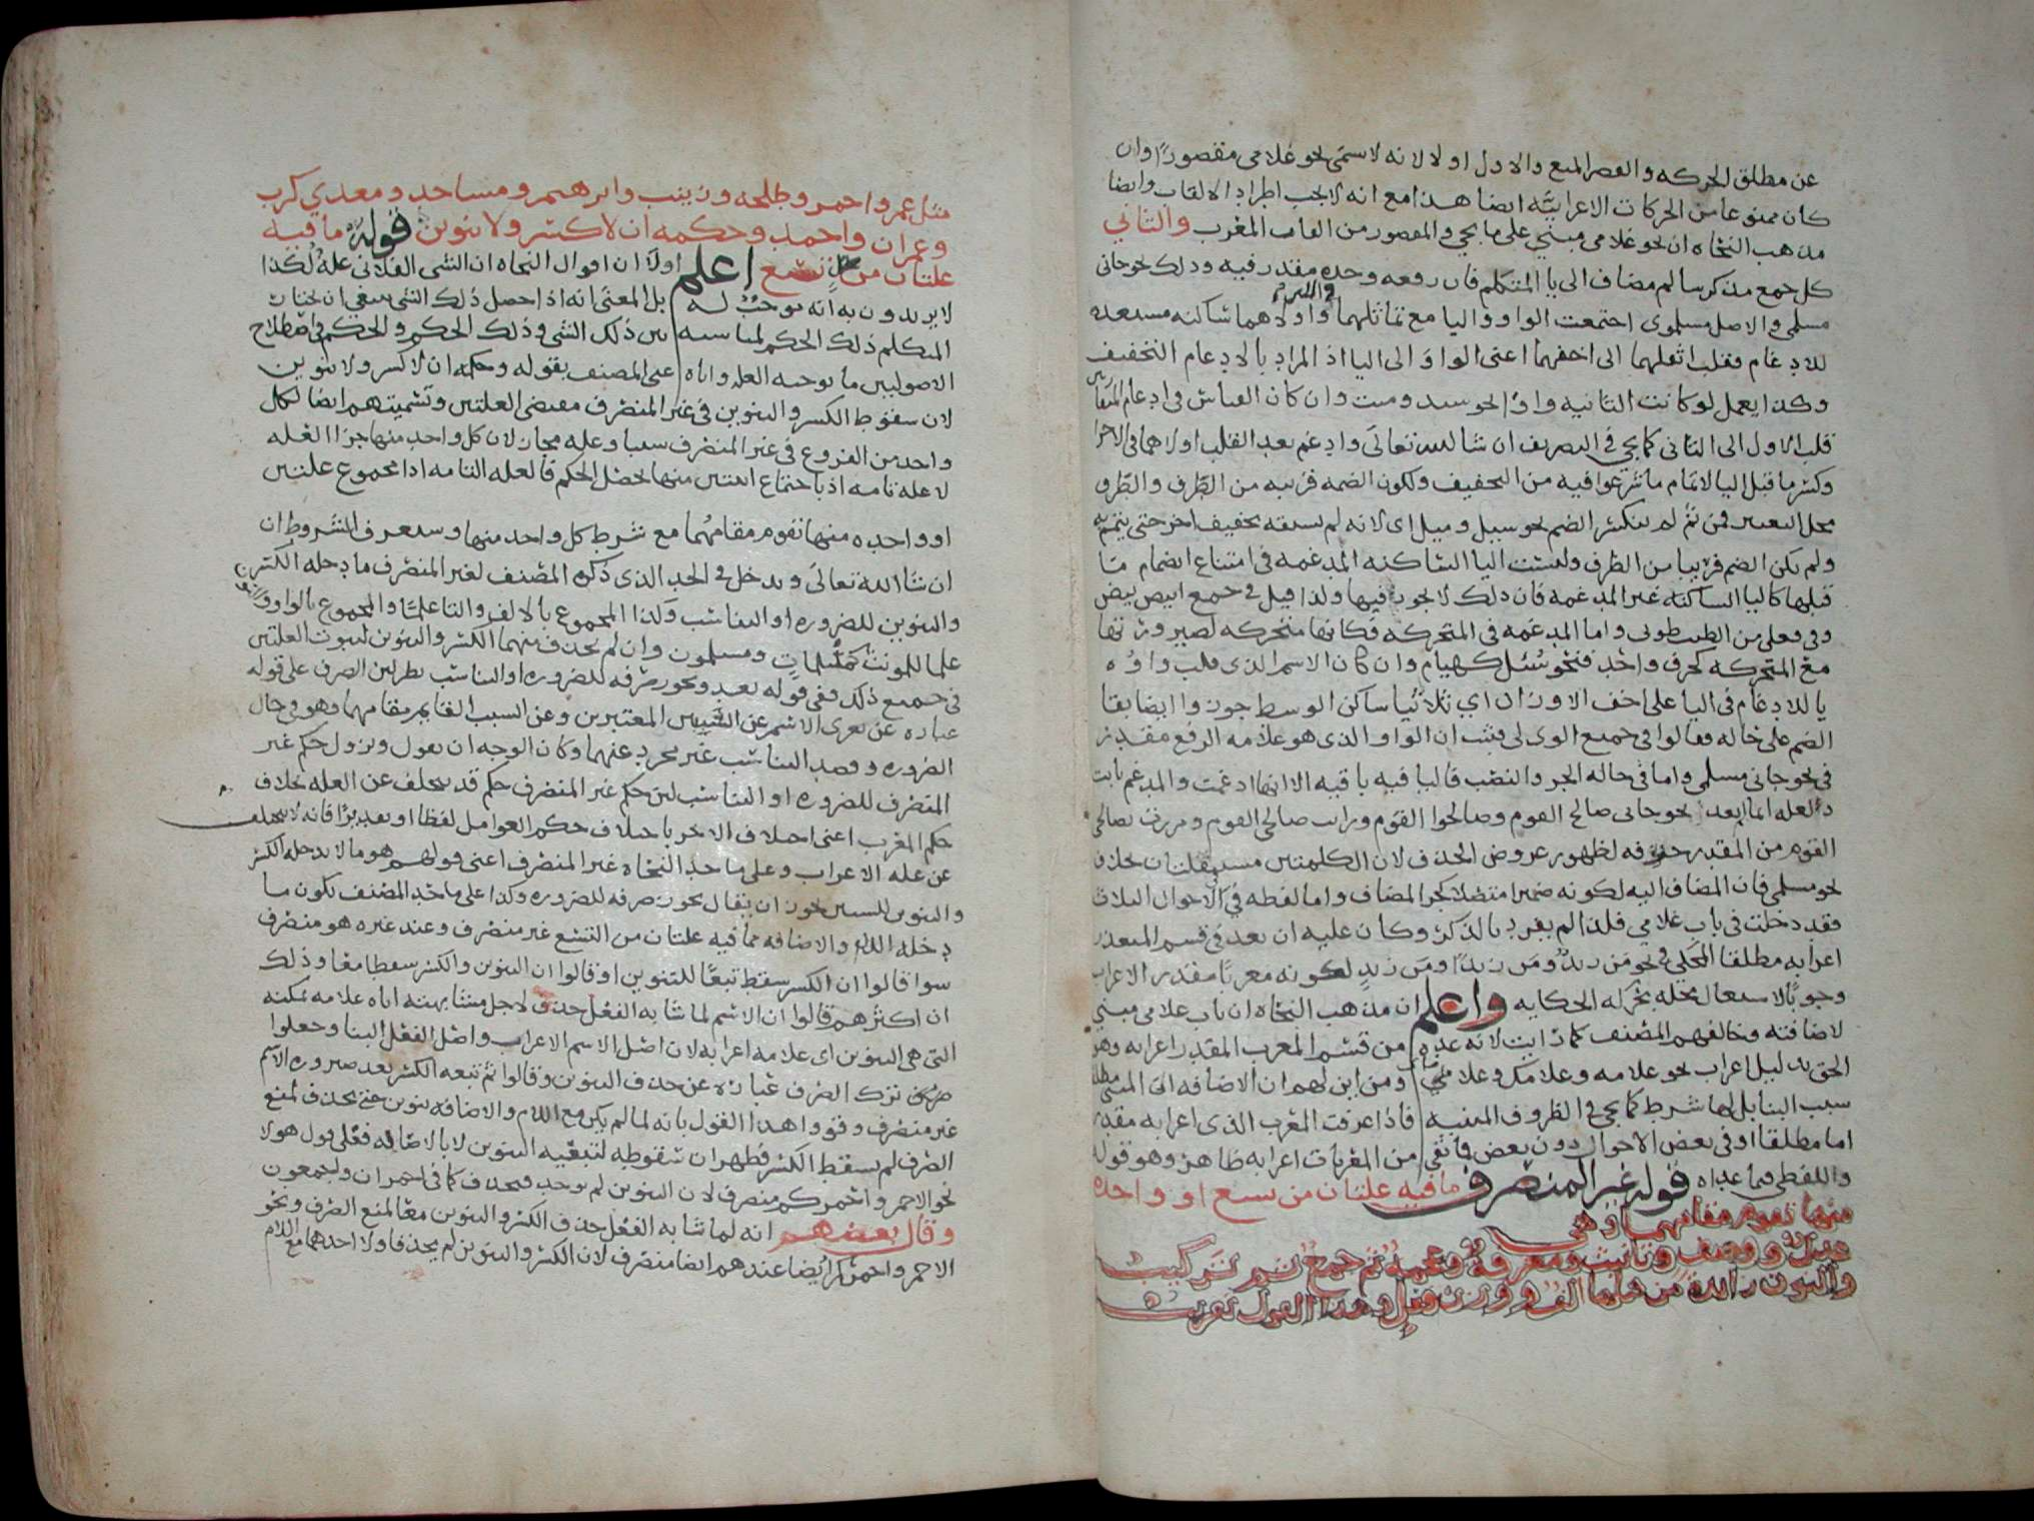 عن مطلق الحركه والقصر المنع والاول اولا لانه لا يسمى نحو غلامي مقصورا وان
كان ممنوعا من الحركات الاعرابيه ايضا هذا مع انه لا يجب اطراد الالقاب وايضا
مذهب النحاه ان نحو غلامي مبني على ما يجي والمقصور من القاب المعرب والثاني
كل جمع مذكر سالم مضاف الى يا المتكلم فان رفعه وحده مقدر فيه وذلك نحو جاني
مسلمي والاصل مسلموي اجتمعت الواو واليا مع تماثلهما في اللين واولاهما ساكنه مستعده
للادغام فقلب اثقلهما الى اخفهما اعني الواو الى اليا اذ المراد بالادغام التخفيف
وكذا يعمل لو كانت الثانيه واوا نحو سيد وميت وان كان القياس في ادغام المتقاربين
قلب الاول الى الثاني كما يجي في التصريف ان شا الله تعالى وادغم بعد القلب اولاهما في الاخرى
وكسر ما قبل اليا لاتمام ما شرعوا فيه من التخفيف ولكون الضمه قريبه من الطرف والطرف
محل التغيير فمن ثم لم يكسر الضم نحو سيل وميل اي لانه لم يسبقه تخفيف اخر حتى يتمم به
ولم يكن الضم قريبا من الطرف وليست اليا الساكنه المدغمه في امتناع انضمام ما
قبلها كاليا الساكنه غير المدغمه فان ذلك لا يجوز فيها ولذا قيل في جمع ابيض بيض
وفي فعلى من الطيب طوبى واما المدغمه في المتحركه فكانها متحركه لصيرورتها
مع المتحركه كحرف واحد فنحو سيل كهيام وان كان الاسم الذي قلب واوه
يا للادغام في اليا على اخف الاوزان اي ثلاثيا ساكن الوسط جوزوا ايضا بقا
الضم على حاله فقالوا في جميع الوى لي فثبت ان الواو الذي هو علامه الرفع مقدر
في نحو جاني مسلمي واما في حاله الجر والنصب فاليا فيه باقيه الا انها ادغمت والمدغم ثابت
نحو جاني صالح القوم وصالحوا القوم ورايت صالحي القوم ومررت بصالحي
القوم من المقدر حروفه لظهور عروض الحذف لان الكلمتين مستقلتان بخلاف
نحو مسلمي فان المضاف اليه لكونه ضميرا متصلا كجز المضاف واما لفظه في الاحوال الثلاث
فقد دخلت في باب غلامي فلذا لم يفرد بالذكر وكان عليه ان يعد في قسم المتعذر
اعرابه مطلقا المحكي في نحو من زيد ومن زيدا ومن زيد لكونه معربا مقدر الاعراب
وجوبا لاشتغال محله بحركه الحكايه واعلم ان مذهب النحاه ان باب غلامي مبني
لاضافته وخالفهم المصنف كما رايت لانه عده من قسم المعرب المقدر اعرابه وهو
الحق بدليل اعراب نحو غلامه وغلامك وغلاماي ومن اين لهم ان الاضافه الى المبني مطلقا
سبب البنا بل لها شرط كما يجي في الظروف المبنيه فاذا عرفت المعرب الذي اعرابه مقدر
اما مطلقا او في بعض الاحوال دون بعض فما بقي من المعربات اعرابه ظاهر وهو قوله
واللفظي فيما عداه قوله غير المنصرف ما فيه علتان من تسع او واحده
منها تقوم مقامهما وهي
عدل ووصف وتانيث ومعرفة وعجمة ثم جمع ثم تركيب
والنون زائدة من قبلها الف ووزن فعل وهذا القول تقريب
مثل عمر واحمر وطلحه وزينب وابرهيم ومساجد ومعدي كرب
وعمران واحمد وحكمه ان لا كسر ولا تنوين قوله ما فيه
علتان من علل تسع اعلم اولا ان اقوال النحاه ان الشى الفلاني علة لكذا
لا يريدون به انه موجب له بل المعنى انه اذا حصل ذلك الشى ينبغي ان يختار
المتكلم ذلك الحكم لمناسبه بين ذلك الشى وذلك الحكم والحكم في اصطلاح
الاصوليين ما توجبه العله واياه عنى المصنف بقوله وحكمه ان لا كسر ولا تنوين
لان سقوط الكسر والتنوين في غير المنصرف مقتضى العلتين وتسميتهم ايضا لكل
واحد من الفروع في غير المنصرف سببا وعله مجاز لان كل واحد منها جزا العله
لا عله تامه اذ باجتماع اثنتين منها يحصل الحكم فالعله التامه اذا مجموع علتين
او واحده منها تقوم مقامهما مع شرط كل واحد منها وستعرف الشروط ان
ان شا الله تعالى ويدخل في الحد الذي ذكره المصنف لغير المنصرف ما دخله الكسر
والتنوين للضروره او التناسب وكذا المجموع بالالف والتا علما والمجموع بالواو والنون
علما للمونث كمسلمات ومسلمون وان لم يحذف منهما الكسر والتنوين لثبوت العلتين
في جميع ذلك ففي قوله بعد ويجوز صرفه للضروره او التناسب نظر لان الصرف على قوله
عباره عن تعري الاسم عن السببين المعتبرين وعن السبب القايم مقامهما وهو في حال
الضروره وقصد التناسب غير مجرد عنهما وكان الوجه ان يقول ويزول حكم غير
المنصرف للضروره او التناسب لان حكم غير المنصرف حكم قد يتخلف عن العله بخلاف
حكم المعرب اعني اختلاف الاخر باختلاف حكم العوامل لفظا او تقديرا فانه لا يتخلف
عن عله الاعراب وعلى ما حد النحاه غير المنصرف اعني قولهم هو ما لا يدخله الكسر
والتنوين للسببين يجوز ان يقال يجوز صرفه للضروره وكذا على ما حد المصنف يكون ما
دخله اللام والاضافه مما فيه علتان من التسع غير منصرف وعند غيره هو منصرف
سوا قالوا ان الكسر سقط تبعا للتنوين او قالوا ان التنوين والكسر سقطا معا وذلك
ان اكثرهم قالوا ان الاسم لما شابه الفعل حذف لاجل مشابهته اياه علامه تمكنه
التي هي التنوين اي علامه اعرابه لان اصل الاسم الاعراب واصل الفعل البنا وجعلوا
ترك الصرف عباره عن حذف التنوين وقالوا ثم تبعه الكسر بعد صيروره الاسم
غير منصرف وقووا هذا القول بانه لما لم يكن مع اللام والاضافه تنوين حتى يحذف لمنع
الصرف لم يسقط الكسر فظهر ان سقوطه لتبعيه التنوين لا بالاصاله فعلى قول هولا
نحو الاحمر واحمركم منصرف لان التنوين لم يوجد فيحذف كما في احمران وجمعون
وقال بعضهم انه لما شابه الفعل حذف الكسر والتنوين معا لمنع الصرف ونحو
الاحمر واحمركم ايضا عندهم ايضا منصرف لان الكسر والتنوين لم يحذفا ولا احدهما مع اللام